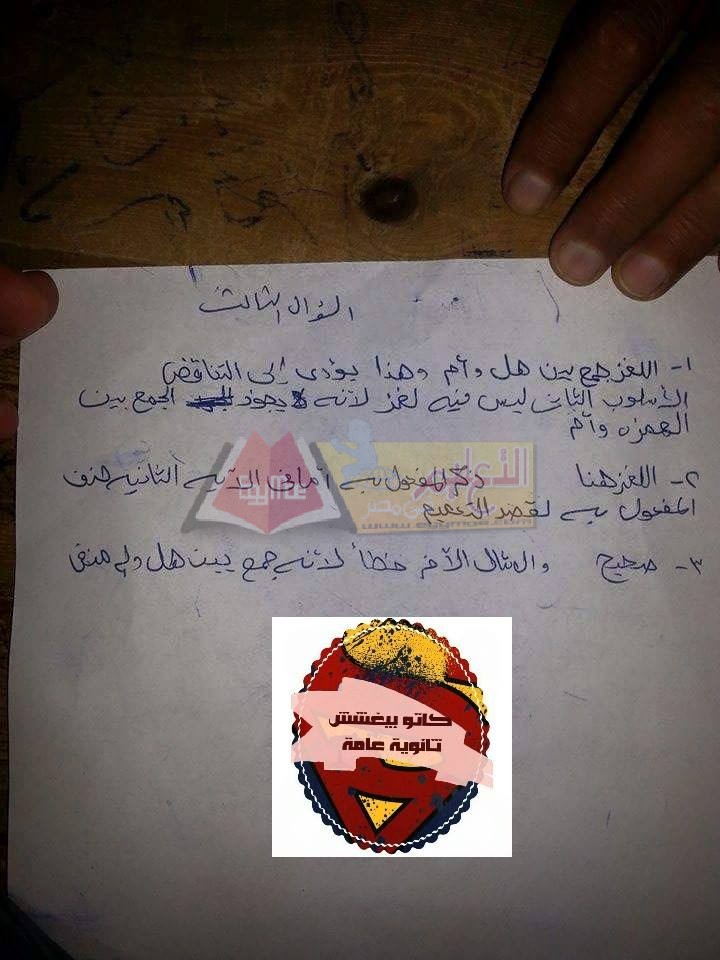 السؤال الثالث
١- اللغز جمع بين هل وأم وهذا يؤدى إلى التناقض
الأسلوب الثانى ليس فيه لغز لأنه يجوز الجمع بين
الهمزه وأم
٢- اللغز هنا ذكر المفعول به أما فى الآيه الثانيه حذف
المفعول به لقصد التعميم
٣- صحيح والمثال الآخر خطأ لأنه جمع بين هل و منفى
التعليم
مصر
www.
كاتو بيغشش
ثانوية عامة